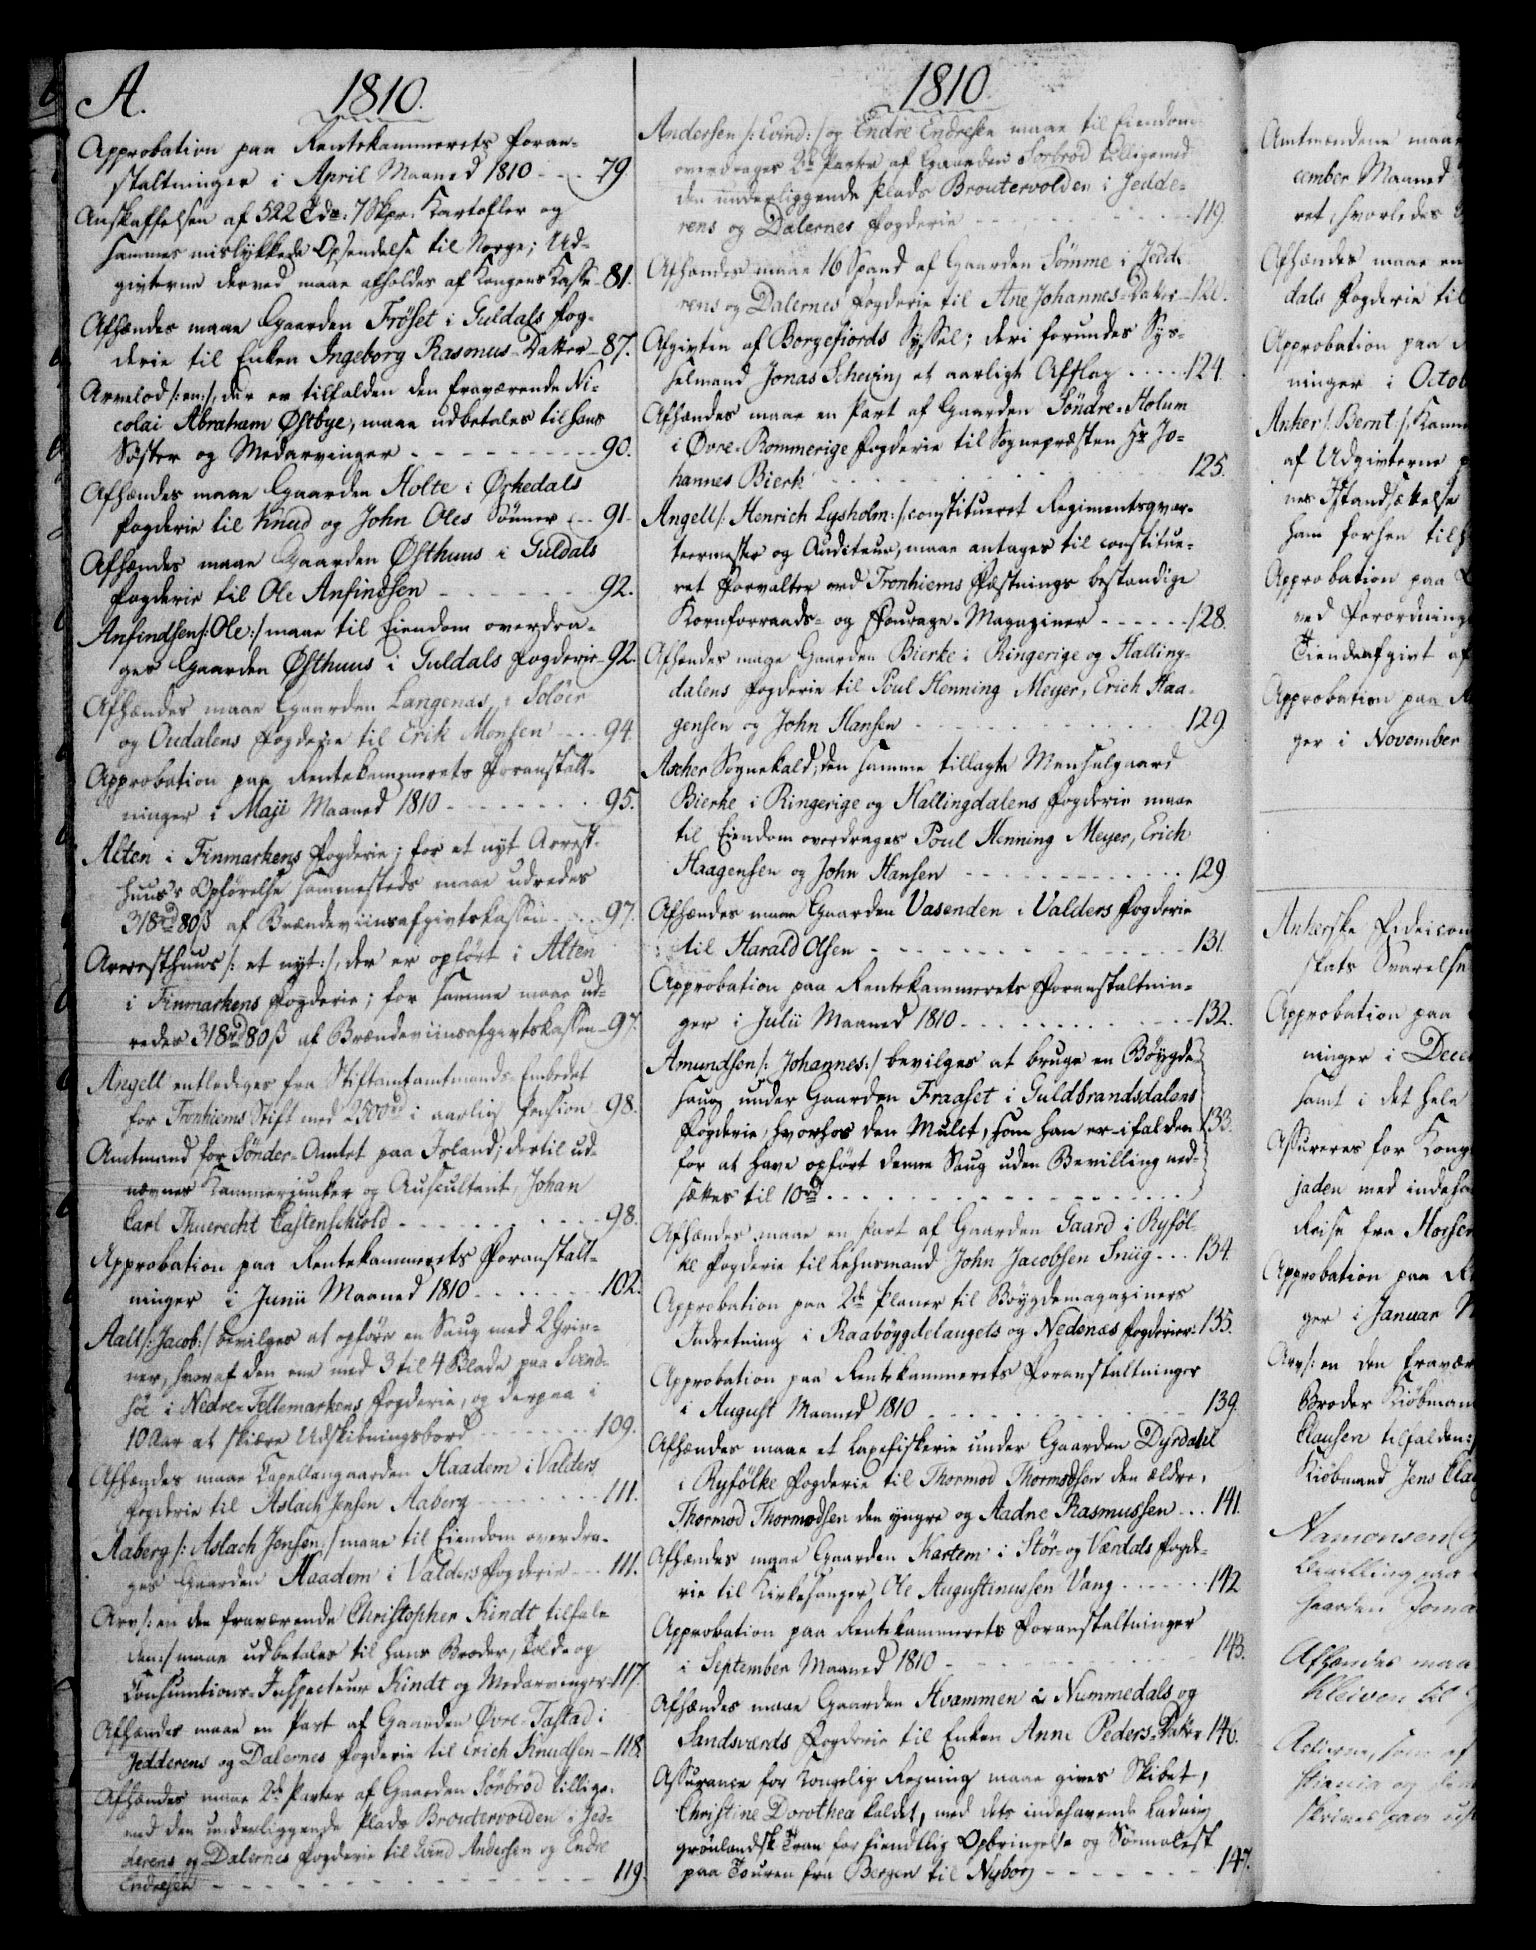 A. 1810.
Approbation paa Rentekammerets Foran-
staltninger i April Maaned 1810 - - - 79
Anskaffelsen af 522 Tdr: 7 Skpr: Kartofler og
sammes mislykkede Opsendelse til Norge; Ud-
givterne derved maae afholdes af Kongens Kasse - 81.
Afhændes maae Gaarden Fröset i Guldals Fog-
derie til Enken Ingeborg Rasmus-Datter - 87.
Arvelod /:en:/, der er tilfalden den fraværende Ni-
colai Abraham Østbye, maae udbetales til hans
Söster og Medarvinger - - - - - - - - - 90.
Afhændes maae Gaarden Holte i Orkedals
Fogderie til Knud og John Oles Sönner - - - 91.
Afhændes maae Gaarden Østhuus i Guldals
Fogderie til Ole Anfindsen - - - - - - 92.
Anfindsen /:Ole:/ maae til Eiendom overdra-
ges Gaarden Østhuus i Guldals Fogderie - 92.
Afhændes maae Gaarden Langenas i Solöer
og Oudalens Fogderie til Erik Monsen - - - 94.
Approbation paa Rentekammerets Foranstalt-
ninger i Maji Maaned 1810 - - - - - - - 95.
Alten i Finmarkens Fogderie; for et nyt Arrest-
huus's Opförelse sammesteds maae udredes
318 rd 80 ß af Brændeviinsafgivtskassen - - - 97.
Arresthuus /: et nyt:/, der er opfört i Alten
i Finmarkens Fogderie; for samme maae ud-
redes 318 rd 80 ß af Brændeviinsafgivtskassen - 97.
Angell entlediges fra Stiftamtmands-Embedet
for Tronhiems Stift med 2500 rd i aarlig Pension - 98.
Amtmand for Sönder-Amtet paa Island; dertil ud-
nævnes Kammerjunker og Auscultant, Johan
Carl Thuerecht Castenschiold - - - - - - - 98.
Approbation paa Rentekammerets Foranstalt-
ninger i Junii Maaned 1810 - - - - - - - 102.
Aalt /:Jacob:/ bevilges at opföre en Saug med 2 Grin-
ner, hvoraf den ene med 3 til 4 Blade paa Svend-
söe i Nedre-Tellemarkens Fogderie, og derpaa i
10 Aar at skiære Udskibningsbord - - - - - - 109.
Afhændes maae Capellangaarden Haadem i Valders
Fogderie til Aslach Jensen Aaberg - - - - - - - 111.
Aaberg /: Aslach Jensen:/ maae til Eiendom overdra-
ges Gaarden Haadem i Valders Fogderie - - - 111.
Arv /: en den fraværende Christopher Kindt tilfal-
den:/ maae udbetales til hans Broder, Told- og
Consumtions-Inspecteur Kindt og Medarvinger - 117.
Afhændes maae en Part af Gaarden Øvre-Tastad i
Jedderens og Dalernes Fogderie til Erich Knudsen - 118.
Afhændes maae 2de Parter af Gaarden Sörbröd tillige-
med den underliggende Plads Broutervolden i Jed-
derens og Dalernes Fogderie til Evind Andersen og Endre
Endresen - - - - - - - - - - - - - - - 119.
1810.
Andersen /: Evind:/ og Endre Endresen maae til Eiendom
overdrages 2de Parter af Gaarden Sorbrod tilligemed
den underliggende Plads Broutervolden i Jedde-
rens og Dalernes Fogderie - - - - - - - - 119.
Afhændes maae 16 Spand af Gaarden Sömme i Jedde-
rens og Dalernes Fogderie til Ane Johannes-Datter - 120.
Afgivten af Borgefiords Syssel; deri forundes Sys-
selmand Jonas Scheving et aarligt Afslag - - - - 124.
Afhændes maae en Part af Gaarden Söndre-Holum
i Øvre-Rommerige Fogderie til Sognepræsten Hr Jo-
hannes Bierk - - - - - - - - 125.
Angell /: Henrich Lysholm:/, constitueret Regimentsqvar-
teermester og Auditeur, maae antages til constitue-
ret Forvalter ved Tronhiems Fæstnings bestandige
Kornforraads- og Fourage-Magaziner - - - - - 128.
Afhændes maae Gaarden Bierke i Ringerige og Halling-
dalens Fogderie til Poul Henning Meyer, Erich Haa-
gensen og John Hansen - - - - - - - - - 129
Ascher Sognekald; den samme tillagte Mensalgaard
Bierke i Ringerige og Hallingdalens Fogderie maae
til Eiendom overdrages Poul Henning Meyer, Erich
Haagensen og John Hansen - - - - - - - - 129
Afhændes maae Gaarden Vasenden i Valders Fogderie
til Harald Olsen - - - - - - - - - - - 131.
Approbation paa Rentekammerets Foranstaltnin-
ger i Julii Maaned 1810 - - - - - - - - - 132.
Amundsen /: Johannes:/ bevilges at bruge en Böygde-
saug under Gaarden Fraaset i Guldbrandsdalens
Fogderie, hvorhos den Mulct, som han er ifalden 133.
for at have opfört denne Saug uden Bevilling ned-
sættes til 10 rd - - - - - - - - - - -
Afhændes maae en Part af Gaarden Gaard i Ryföl-
ke Fogderie til Lehnsmand John Jacobsen Sniig - - - 134.
Approbation paa 2de Planer til Böygdemagaziners
Indretning i Raabögdelaugets og Nedenæs Fogderier - 135.
Approbation paa Rentekammerets Foranstaltninger
i August Maaned 1810 - - - - - - - - - 139.
Afhændes maae et Laxefiskerie under Gaarden Dyrdahl
i Ryfölke Fogderie til Thormod Thormodsen den ældre,
Thormod Thormodsen den yngre og Aadne Rasmussen - - - 141.
Afhændes maae Gaarden Kartem i Stör- og Værdals Fogde-
rie til Kirkesanger Ole Augustinussen Vang - - - - - 142
Approbation paa Rentekammerets Foranstaltninger
i September Maaned 1810 - - - - - - - - - 143.
Afhændes maae Gaarden Hvammen i Nummedals og
Sandsværds Fogderie til Enken Anne Peders-Datter 146.
Assurance for Kongelig Regning maae gives Skibet,
Christine Dorothea kaldet, med dets indehavende Ladning
grönlandsk Tran for fiendtlig Opbringelse og Sönnalest
paa Touren fra Bergen til Nyborg - - - - - - 147.
Amtmændene maae
cember Maaned
ret, hvorledes
Afhændes maae en
dals Fogderie til
Approbation paa
ninger i Octob
Anker /: Bernt:/, Kamm
af Udgivterne
nes Istandsættelse
ham forhen til
Approbation paa
ved Forordning
Tiendeafgivt af
Approbation paa
ger i November
Ankerske Fideicom
skats Svarelse
Approbation paa
ninger i Dece
samt i det hele
Assureres for Kong
jaden med indeha
Reise fra
Approbation paa
ger i Januar M
Arv /: en den fravær
Broder Kiöbmand
Clausen tilfalden:/
Kiöbmand Jens Clau
Bevilling paa
Afhændes maa
Kleiven til
Actierne, som af